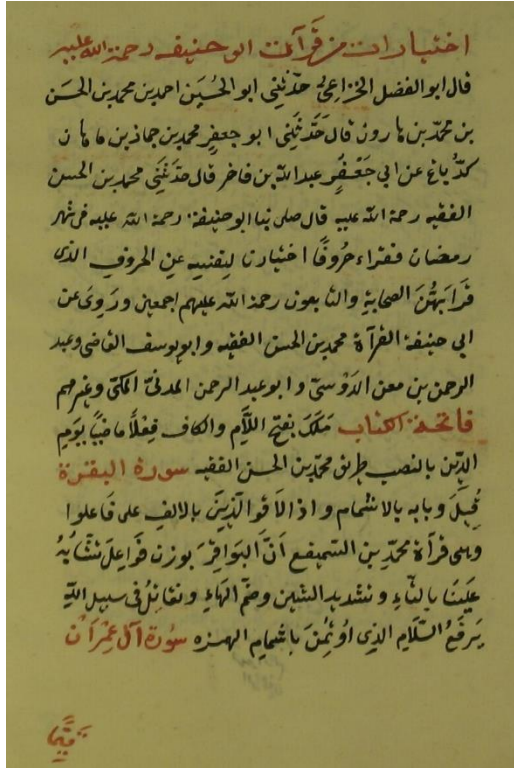 اختيارات من قرآئت ابو حنيفه رحمة الله عليه
قال ابو الفضل الخزاعيّ حدّثني ابو الحُسَين احمد بن محمد بن الحسَن
بن محمّد بن هارون قال حَدَّثَنِى ابو جعفرٍ محمد بن حماذ بن ماهان
عن ابي جَعْفَرٍ عبد اللّه بن فاخر قال حَدَّثَنِى محمد بن الحسن
الفقيه رحمة اللّه عليه قال صلى بنا ابو حنيفة رحمة اللّه عليه فى شهر
رمضان فقراء حُروفًا اختيارنا لنفسه عن الحروف الذى
قرابهُنّ الصحابة والتابعون رحمة اللّه عليهم اجمعين ورَوىَ عن
ابي حنيفة القرآة محمد بن الحسن الفقيه وابو يوسف القاضى وعبد
الرحمن بن معن الدَوْسىّ وابو عبد الرحمن المدنىّ المكّى وغيرهم
فاتحة الكتاب مَلَكَ بفتح اللاَّم والكاف فِعْلاً ماضيًا يَومَ
الدّين بالنصب طريق محمد بن الحسن الفقيه سورة البقرة
قُيِلَ وبابه بالاشمام واذا لاقوا الَّذِينَ بالالف على فَاعلوا
وهى قرآة محمّد بن السّميفع انَّ البَوَاقِرَ بوزن فَوَاعِلَ تَشَّابَهُ
عَلَينَا بالتّاء وتشديد الشين وضمّ الهَاءِ ونقاتلُ فى سبيل اللّه
يَرفَعُ السّلَام الذِى اوتُمِنَ باشمام الهمزه سُورَة آل عِمْرَانْ
قيّمًا